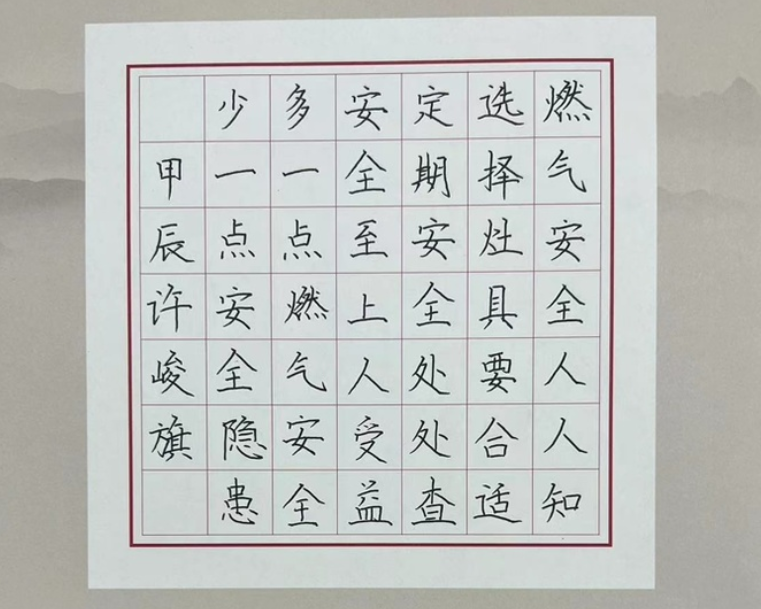 燃气安全人人知
选择灶具要合适
定期安全处处查
安全至上人受益
多一点燃气安全
少一点安全隐患
甲辰许峻旗